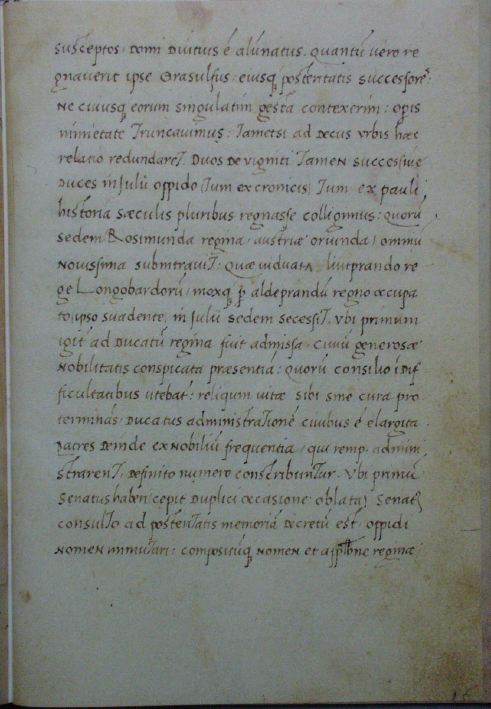 susceptos. Domi Diutius é alūnatus. Quantū uero re
gnauerit ipse Grasulfus, eiusq; posteritatis successores:
Ne cuiusq; eorum singulatim gesta contexerim: opis
nimietate Truncauimus: Tametsi ad Decus urbis hæc
relatio redundaret. Duos De uiginti Tamen successiue
Duces in Julii oppido (Tum ex cronicis) Tum ex pauli
historia sæculis pluribus regnasse colligimus: Quorū
sedem Rosimunda regina, austriæ oriunda, omniū
Novissima submtrauit. Quæ uiduata, liutprando re
ge Longobardorū, moxq; p aldeprandū regno occupa
to, ipso suadente, in Julii sedem secessit. Vbi primum
igit ad Ducatū regina fuit admissa, Ciuiū generosæ
Nobilitatis conspicata præsentiā: Quorū consilio i Dif
ficultatibus utebat: reliqum uitæ sibi sine cura pro
terminās, Ducatus administratione ciuibus é elargita.
patres Deinde ex Nobiliū frequentia, qui remp. admini
strarent, Definito numero conscribuntur. Vbi primū
Senatus haberi cepit Duplici occasione oblata) Senat
consulto ad posteritatis memoriā Decretū est, oppidi
Nomen immutari: compositūq; Nomen et a reginæ